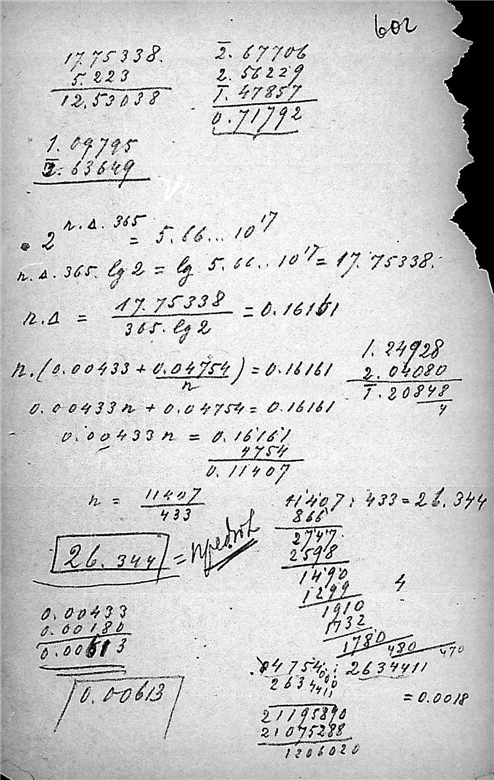 602
17.75338.
5.223
12.53038
2̄.67706
2.56229
1̄.47857
0.71792
1.09795
2̄.63649
2^{n.Δ.365} = 5.66...10^{17}
n.Δ.365.lg2 = lg 5.66..10^{17} = 17.75338.
n.Δ = 17.75338 / 365.lg2 = 0.16161
n.(0.00433 + 0.04754/n) = 0.16161
1.24928
2.04080
1̄.20848
4
0.00433n + 0.04754 = 0.16161
0.00433n = 0.16161
4754
0.11407
n = 11407 / 433
26.344 =
11407 : 433 = 26.344
866
2747
2598
1490
1299
1910
1732
1780
480
470
4
0.00433
0.00180
0.00613
0.00613
04754000 : 2634411
2634411
= 0.0018
21195890
21075288
1206020